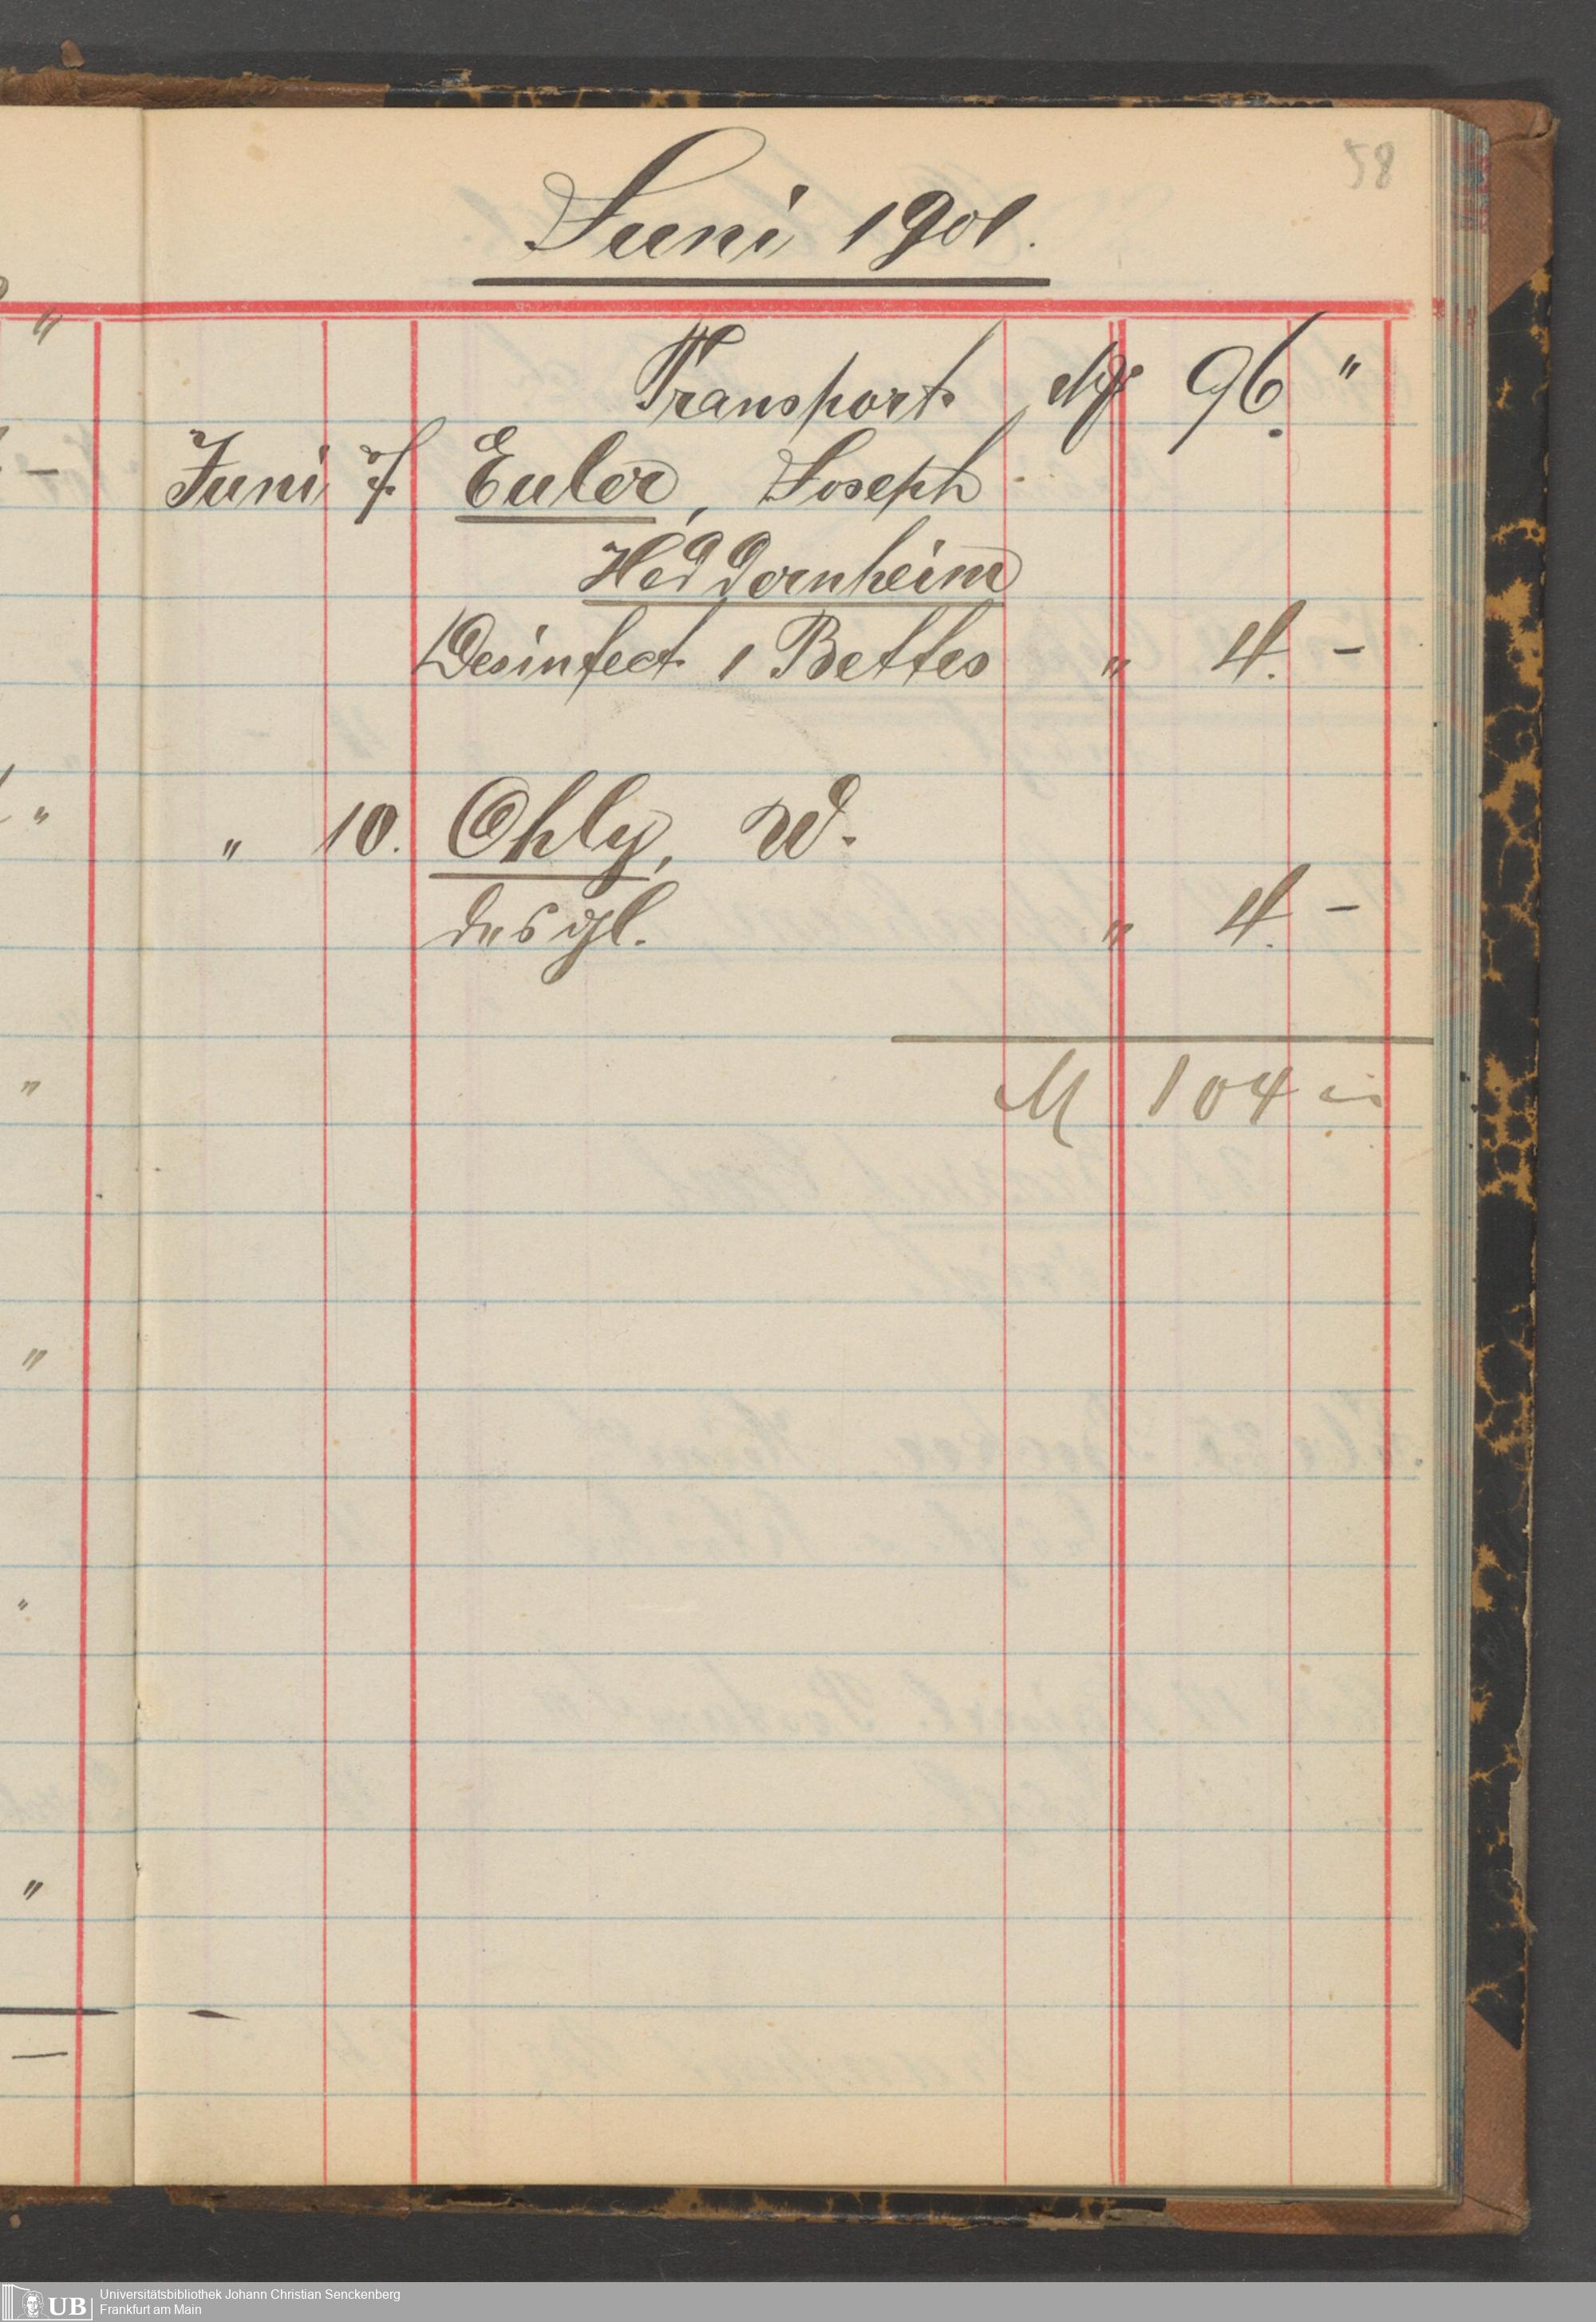 58
Juni 1901.
Transport M 96. "
Juni 7. Euler, Joseph
Heddernheim
Desinfect. 1 Bettes " 4. -
" 10. Ohly, W.
desgl. " 4. -
M 104 "
UB Universitätsbibliothek Johann Christian Senckenberg
Frankfurt am Main